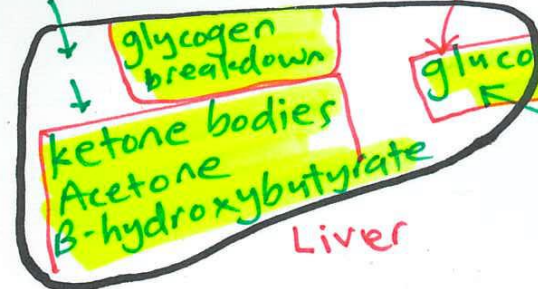 glycogen
breakdown
gluco
ketone bodies
Acetone
B-hydroxybutyrate
Liver